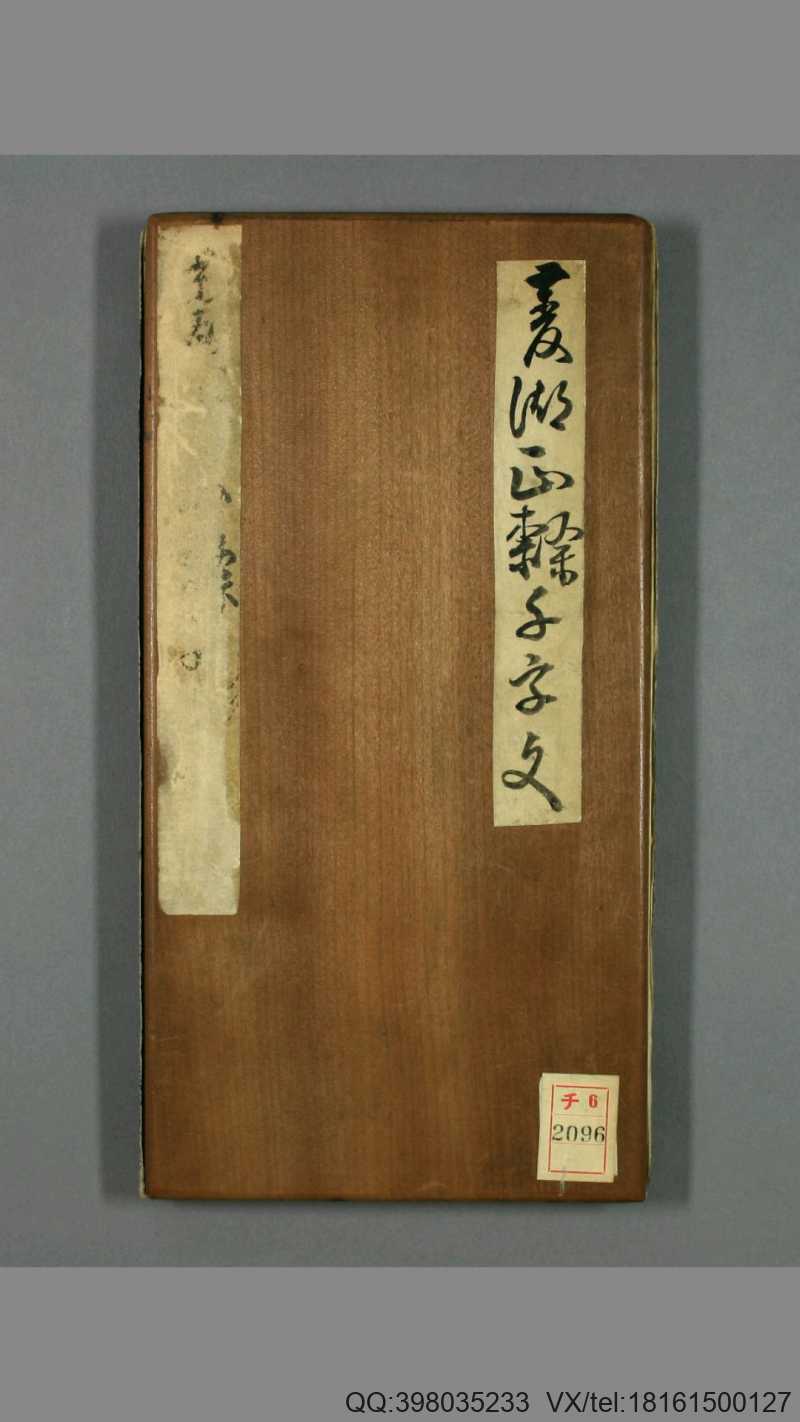 菱湖正隸千字文
チ 6
2096
QQ:398035233 VX/tel:18161500127